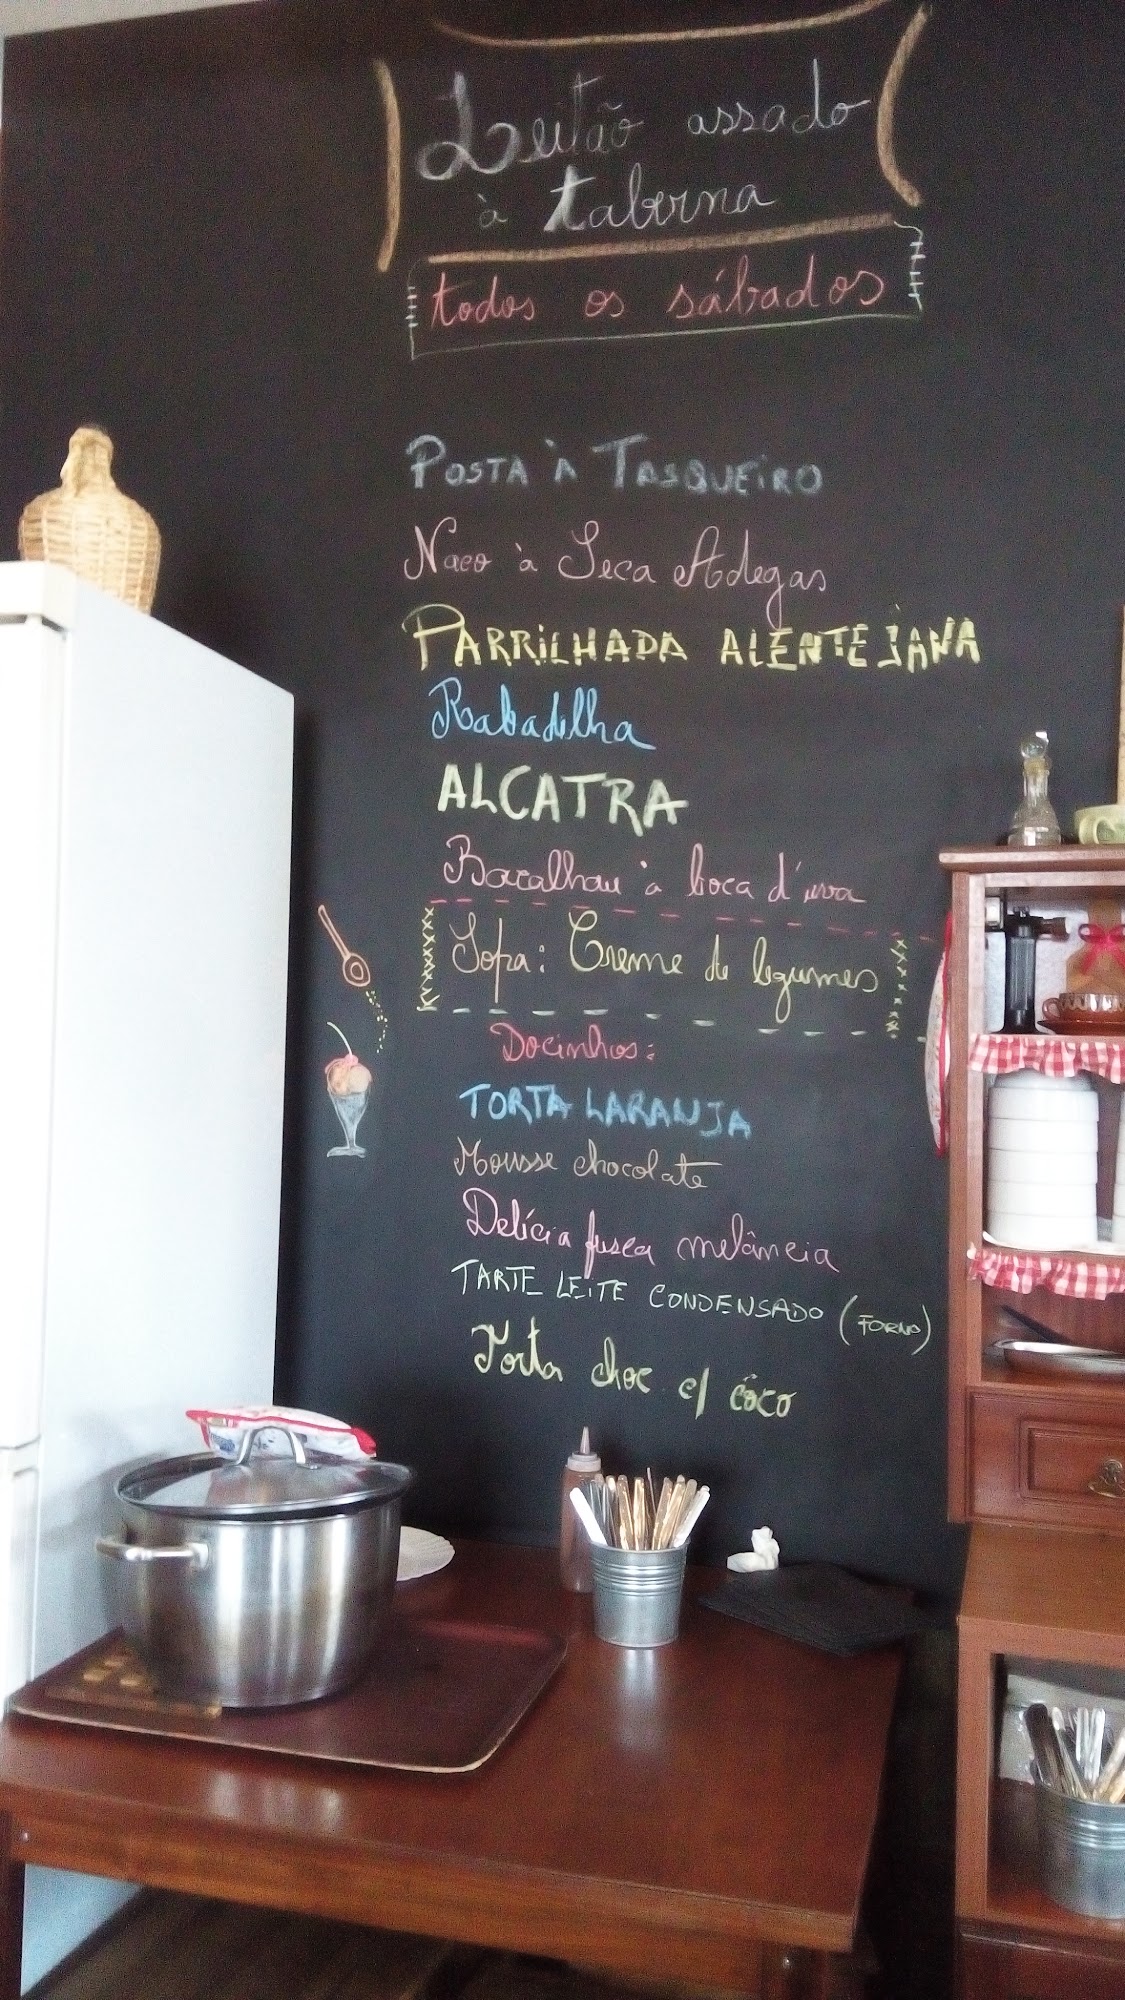 Leitão assado
à taberna
todos os sábados
POSTA À TASQUEIRO
Naco à Seca Adegas
PARRILHADA ALENTEJANA
Rabadilha
ALCATRA
Bacalhau à boca d'uva
Sopa: Creme de legumes
Docinhos:
TORTA LARANJA
Mousse chocolate
Delícia fusca melância
TARTE LEITE CONDENSADO (FORNO)
Torta choc. c/ côco